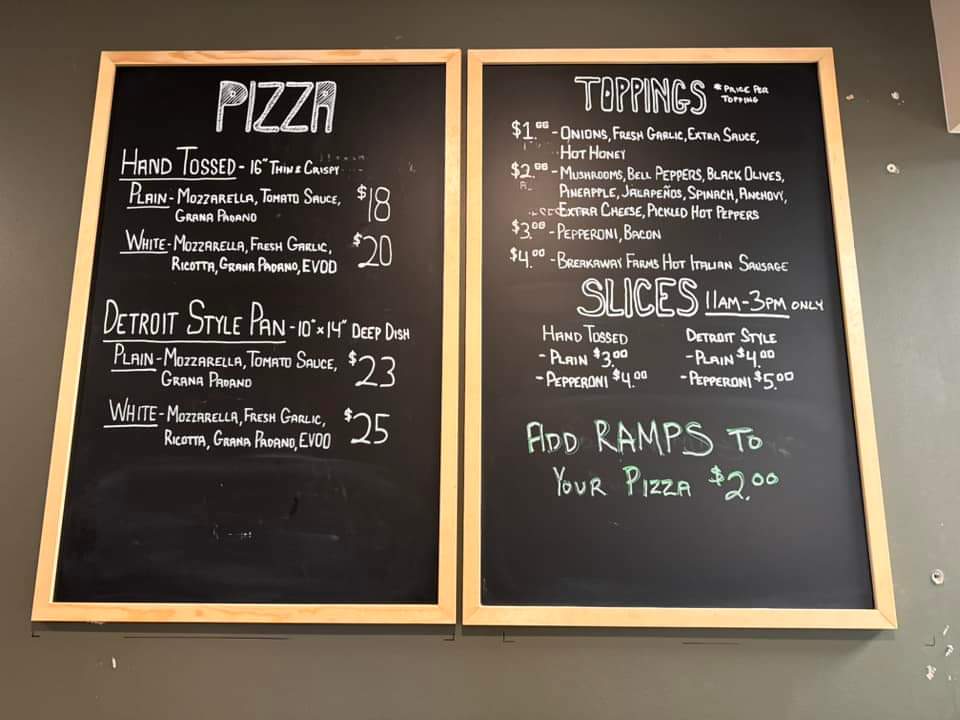 PIZZA
HAND TOSSED - 16" THIN & CRISPY
PLAIN - MOZZARELLA, TOMATO SAUCE, $18
GRANA PADANO
WHITE - MOZZARELLA, FRESH GARLIC, $20
RICOTTA, GRANA PADANO, EVOO
DETROIT STYLE PAN - 10" x 14" DEEP DISH
PLAIN - MOZZARELLA, TOMATO SAUCE, $23
GRANA PADANO
WHITE - MOZZARELLA, FRESH GARLIC, $25
RICOTTA, GRANA PADANO, EVOO
TOPPINGS *PRICE PER
TOPPING
$1.00 - ONIONS, FRESH GARLIC, EXTRA SAUCE,
HOT HONEY
$2.00 - MUSHROOMS, BELL PEPPERS, BLACK OLIVES,
PINEAPPLE, JALAPEÑOS, SPINACH, ANCHOVY,
EXTRA CHEESE, PICKLED HOT PEPPERS
$3.00 - PEPPERONI, BACON
$4.00 - BREAKAWAY FARMS HOT ITALIAN SAUSAGE
SLICES 11AM-3PM ONLY
HAND TOSSED DETROIT STYLE
- PLAIN $3.00 - PLAIN $4.00
- PEPPERONI $4.00 - PEPPERONI $5.00
ADD RAMPS TO
YOUR PIZZA $2.00